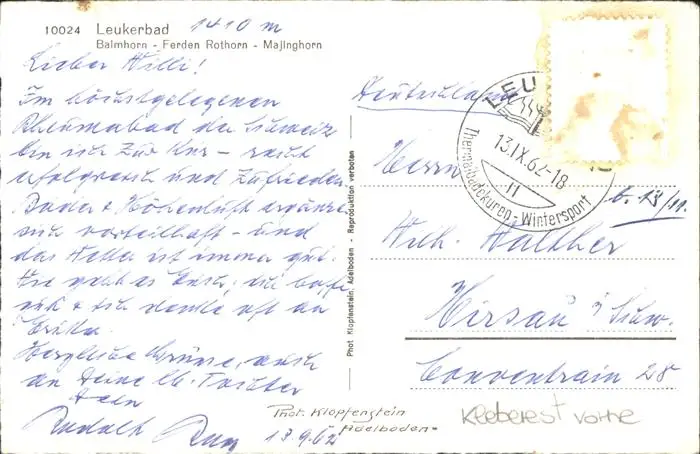 10024 Leukerbad 1410 m
Balmhorn - Ferden Rothorn - Majinghorn
Lieber Willi!
Im höchstgelegenen
Rheumabad der Schweiz
bin ich zur Kur – recht
erfolgreich und zufrieden.
Bäder + Höhenluft
sich vorteilhaft – und
das Wetter ist immer gut.
Wie geht es Euch, ich hoffe
gut + ich denke oft an
Herzliche Grüsse, auch
an Deine lb. Tochter
Dein
Rudolf
13.9.62
Phot. Klopfenstein
Adelboden
Phot. Klopfenstein, Adelboden - Reproduktion verboten
Deutschland
LEU
13.IX.62-18
Thermalbadekuren - Wintersport
Herrn
b. 13/11.
Wilh. Walther
Hirsau
Conventrain 28
Kleberest vorne